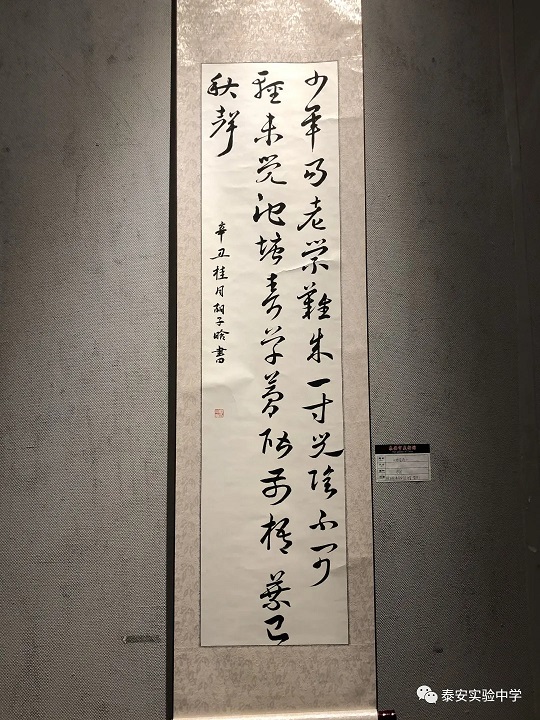 少年易老学難成一寸光陰不可
軽未觉池塘春草夢階前梧葉已
秋聲
辛丑桂月胡子晗書
泰安实验中学